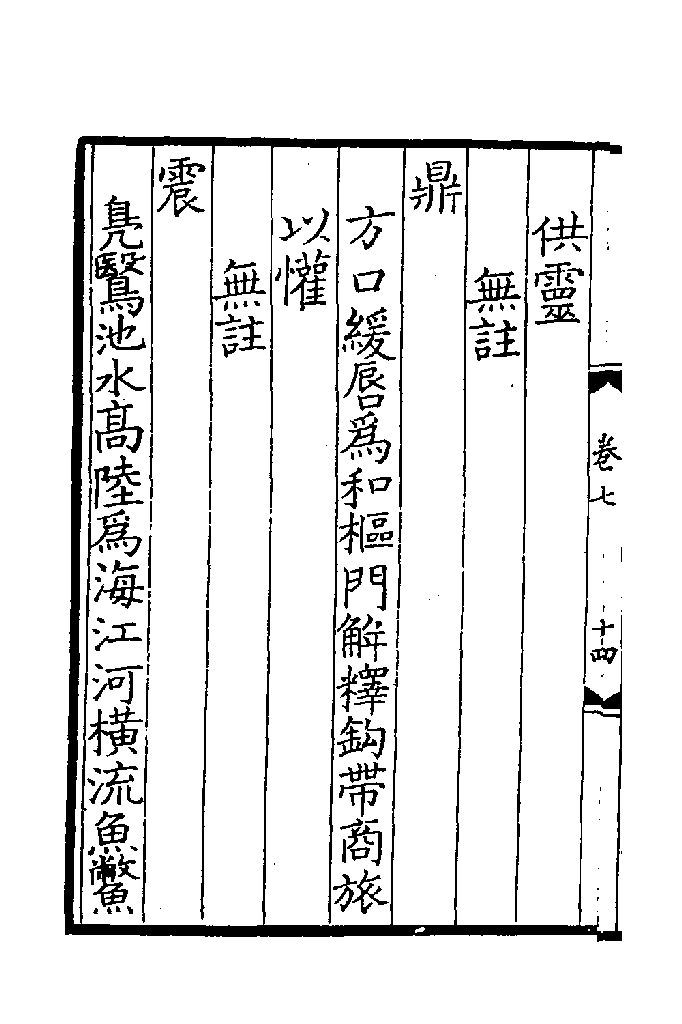 供靈
無註
鼎
方口緩唇為和樞門解釋鈎帶商旅
以懽
無註
震
鳧鷖池水高陸為海江河橫流魚鱉
卷七
十四